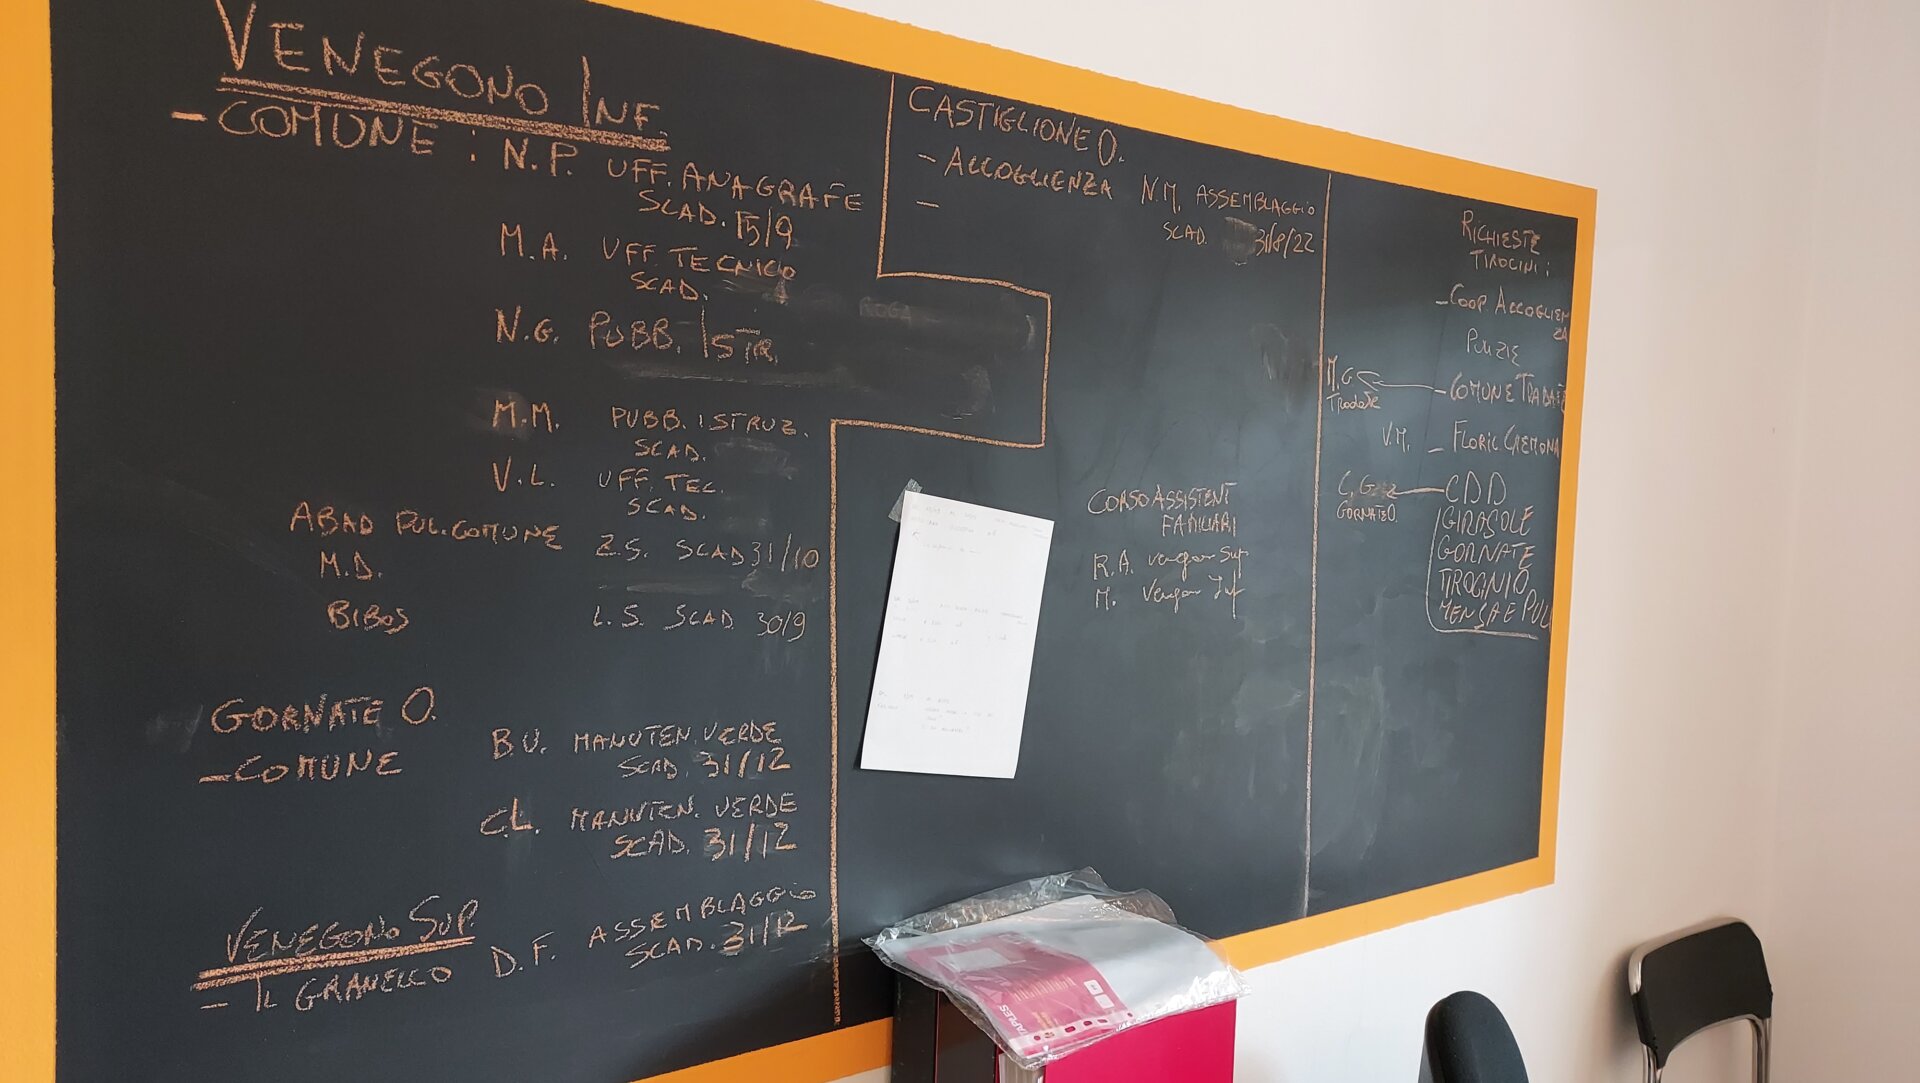 VENEGONO INF.
- COMUNE : N.P. UFF. ANAGRAFE
SCAD. 15/9
M.A. UFF. TECNICO
SCAD.
N.G. PUBB. ISTR.
M.M. PUBB. ISTRUZ.
SCAD.
V.L. UFF. TEC.
SCAD.
ABAD PUL. COMUNE Z.S. SCAD 31/10
M.D.
BIBOS L.S. SCAD 30/9
GORNATE O.
- COMUNE B.V. MANUTEN. VERDE
SCAD. 31/12
C.L. MANUTEN. VERDE
SCAD. 31/12
VENEGONO SUP.
- IL GRANELLO D.F. ASSEMBLAGGIO
SCAD. 31/12
CASTIGLIONE O.
- ACCOGLIENZA N.M. ASSEMBLAGGIO
SCAD. 31/8/22
-
CORSO ASSISTENT
FAMILIARI
R.A. Venegon Sup
M. Venegon Inf
RICHIESTE
TIROCINI:
- COOP ACCOGLIEN
ZA
PULIZIE
M.G - COMUNE TRADATE
Tradate
V.M. - FLORIC. CREMONA
C.G. CDD
GORNATE O. GIRASOLE
GORNATE
TIROCINIO
MENSA E PUL
STAPLES